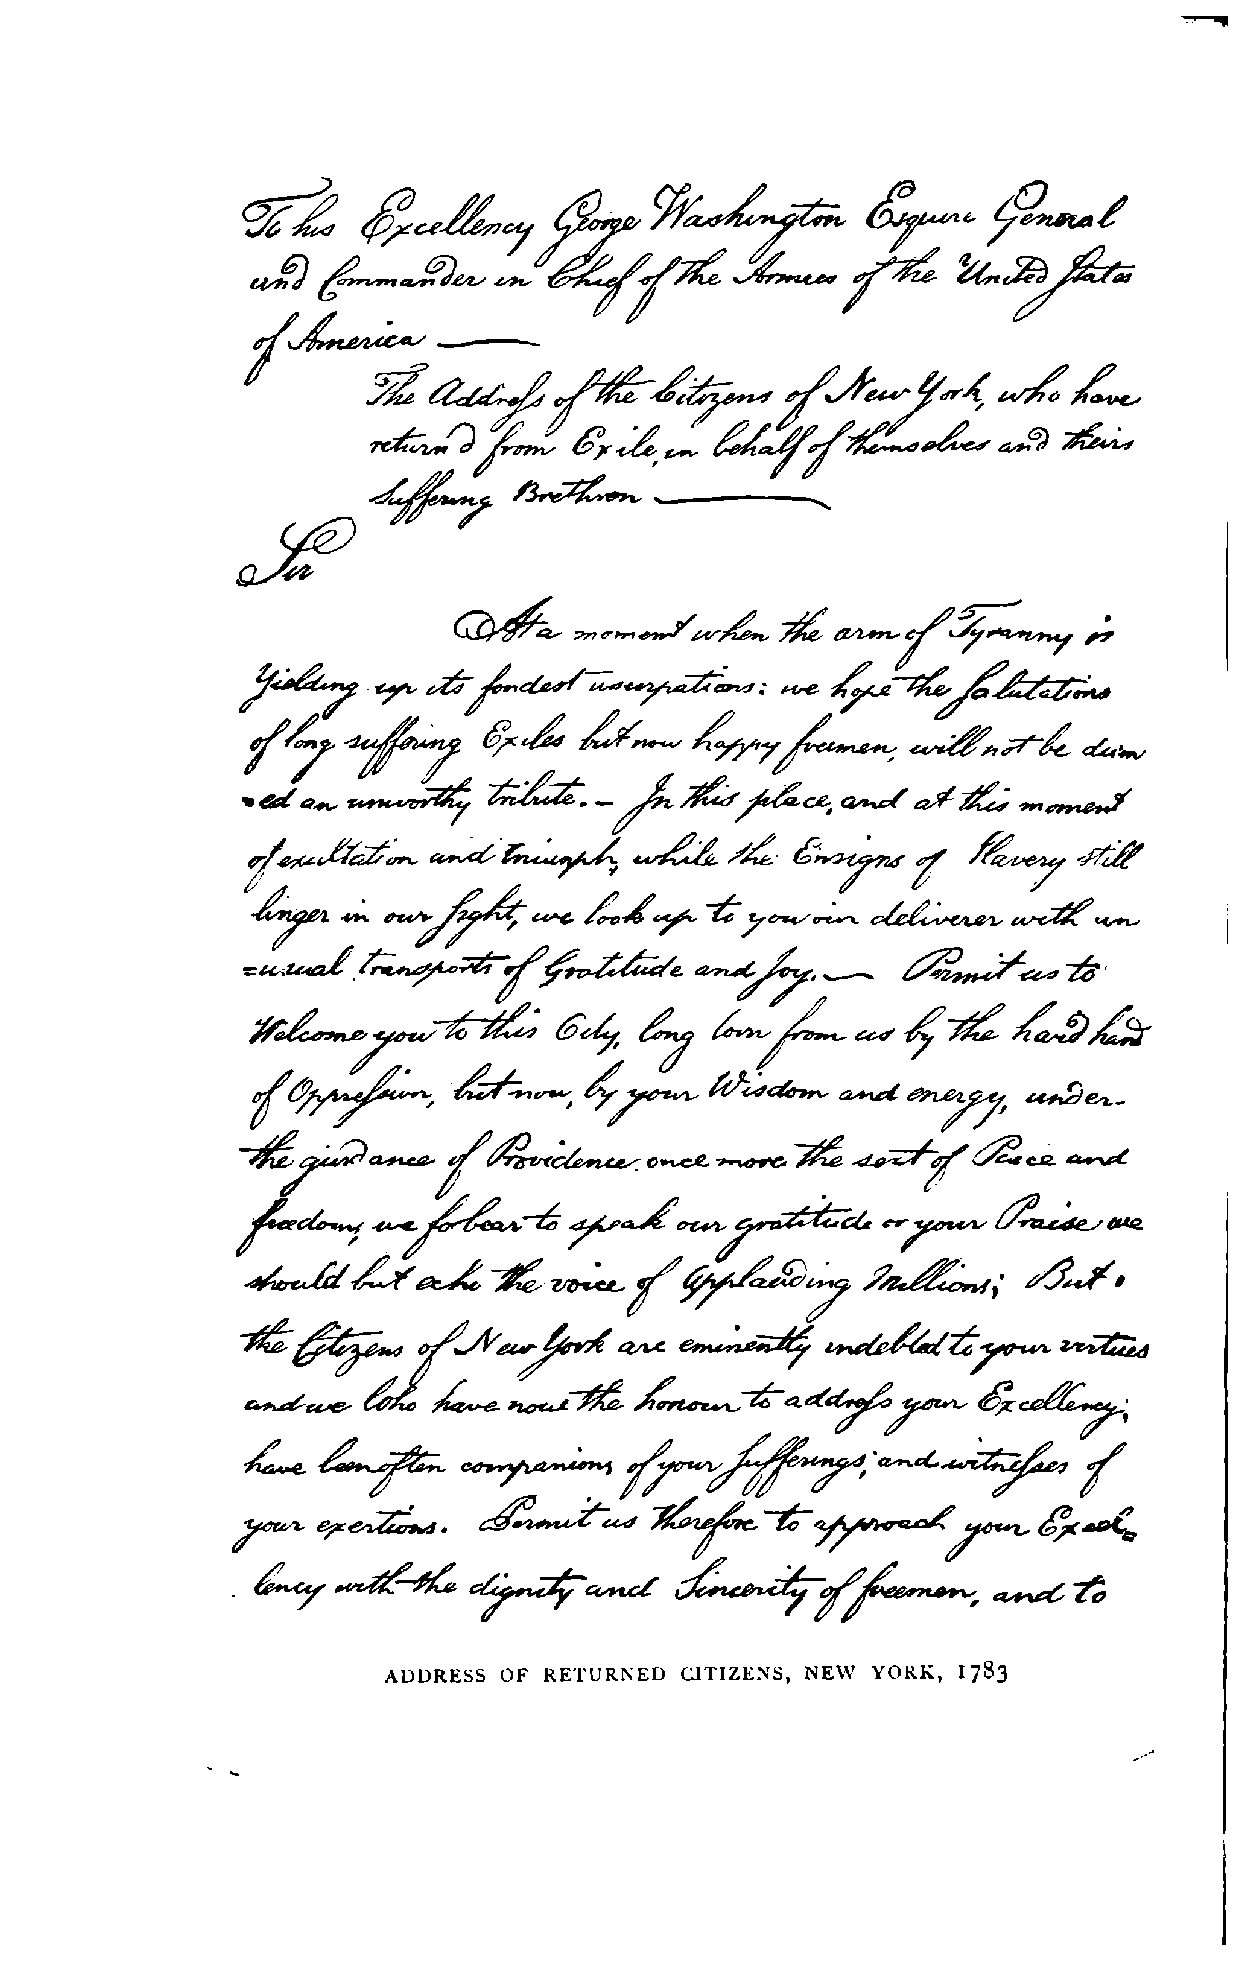 To his Excellency George Washington Esquire General
and Commander in Chief of the Armies of the United States
of America —
The Address of the Citizens of New York, who have
return'd from Exile, in behalf of themselves and their
Suffering Brethren —
Sir
At a moment when the arm of Tyranny is
Yielding up its fondest usurpations: we hope the Salutations
of long suffering Exiles but now happy freemen, will not be deem
=ed an unworthy tribute. – In this place, and at this moment
of exultation and triumph, while the Ensigns of Slavery still
linger in our sight, we look up to you our deliverer with un
=usual transports of Gratitude and Joy. — Permit us to
Welcome you to this City, long torn from us by the hard hand
of Oppression, but now, by your Wisdom and energy, under
the guidance of Providence, once more the seat of Peace and
freedom; we forbear to speak our gratitude or your Praise we
should but echo the voice of applauding Millions; But
the Citizens of New York are eminently indebted to your virtues
and we who have now the honour to address your Excellency,
have been often companions of your Sufferings, and witnesses of
your exertions. Permit us therefore to approach your Excel=
lency with the dignity and Sincerity of freemen, and to
ADDRESS OF RETURNED CITIZENS, NEW YORK, 1783